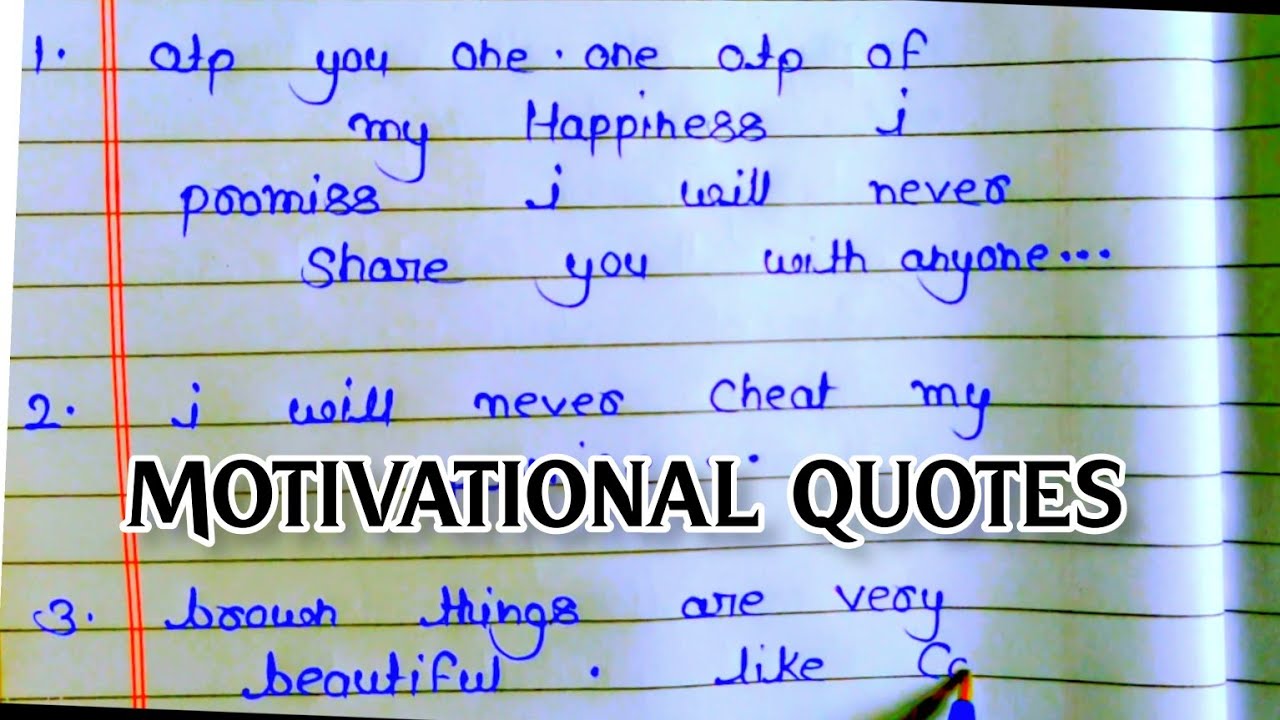 1. otp you one. one otp of
my Happiness i
promiss i will never
Share you with anyone...
2. i will never cheat my
MOTIVATIONAL QUOTES
3. broush things are very
beautiful. like Co